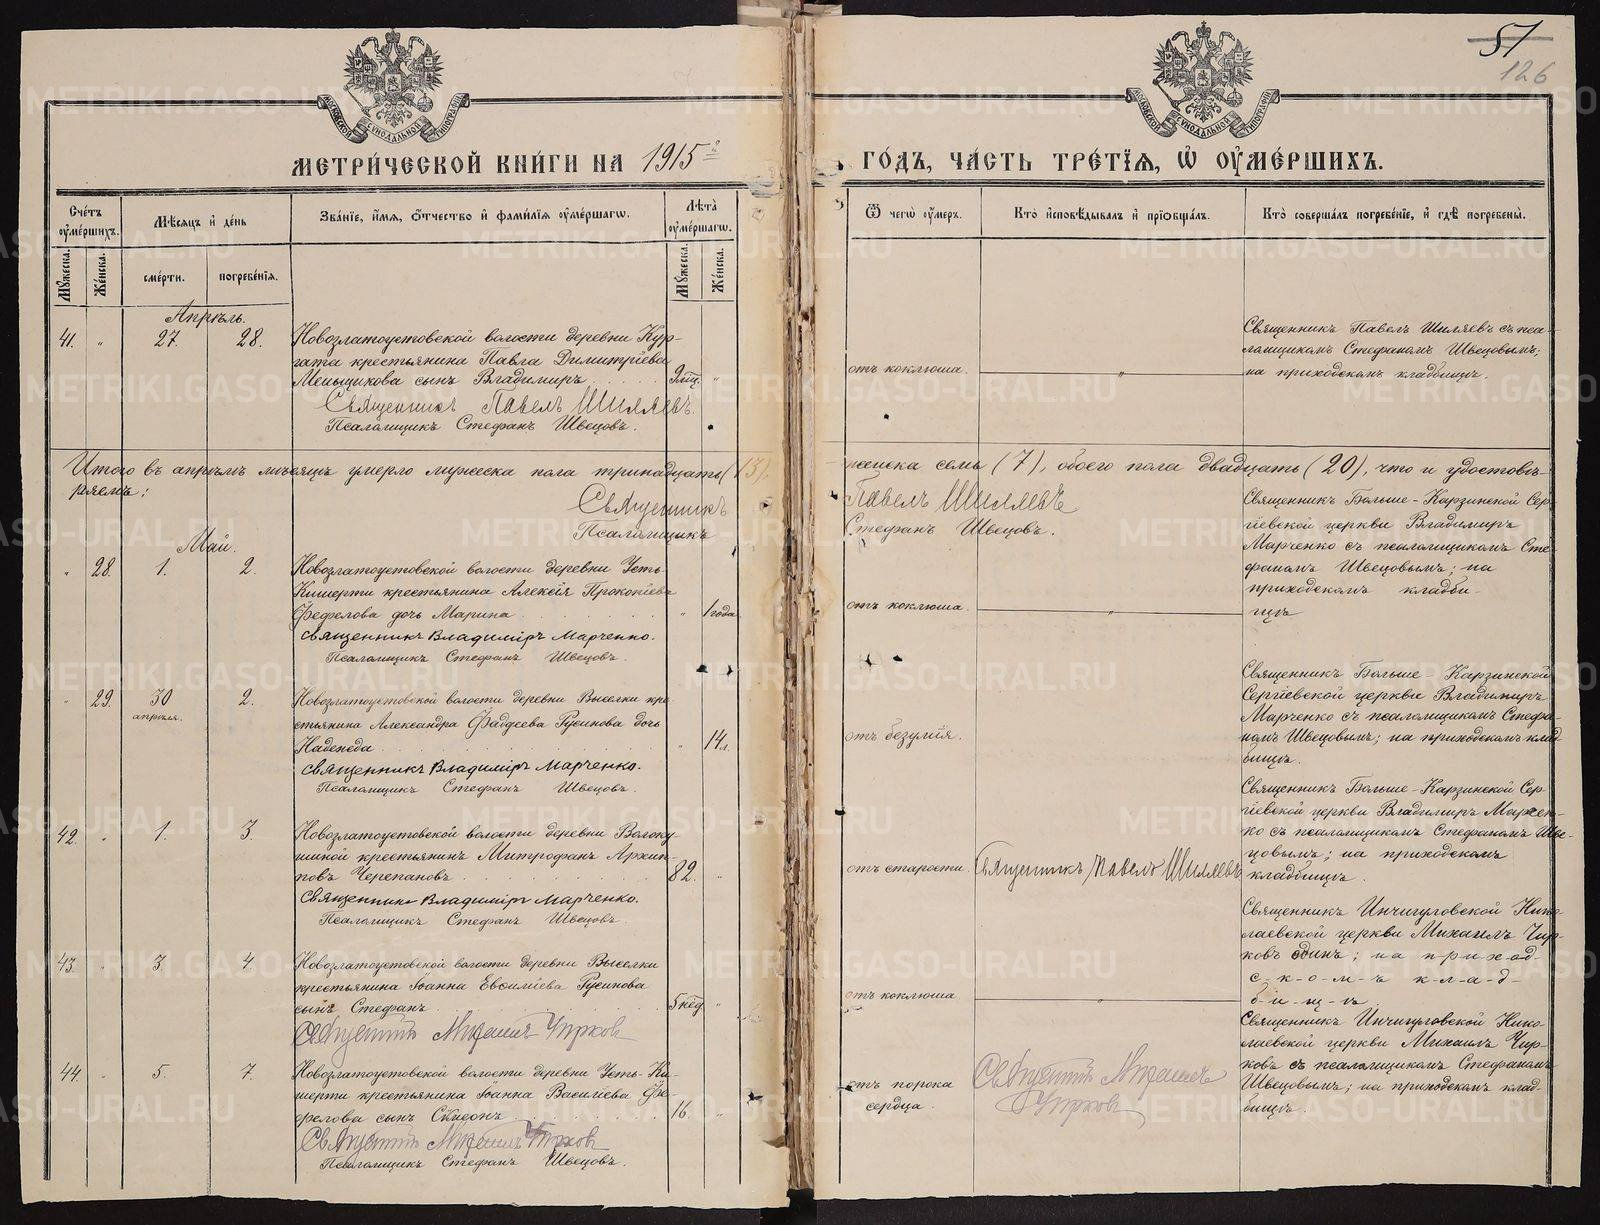 51
126
МОСКОВСКОЙ СѴНОДАЛЬНОЙ ТИПОГРАФИИ
МОСКОВСКОЙ СѴНОДАЛЬНОЙ ТИПОГРАФИИ
МЕТРИ́ЧЕСКОЙ КНИ́ГИ НА 1915 г.
ГО́ДЪ, ЧА́СТЬ ТРЕ́ТІѦ, Ѡ҆ ОУ҆МЕ́РШИХЪ.
Сче́тъ оу҆ме́ршихъ.
Мѣ́сѧцъ и҆ де́нь
Зва́нїе, и҆́мѧ, ѻ҆́тчество и҆ фами́лїѧ оу҆ме́ршагѡ.
Лѣ́та оу҆ме́ршагѡ.
Ѿ чегѡ̀ оу҆́меръ.
Кто̀ и҆сповѣ́дывалъ и҆ прїѡбща́лъ.
Кто̀ соверша́лъ погребе́нїе, и҆ гдѣ̀ погребены̀.
Мꙋ́жеска.
Же́нска.
сме́рти.
погребе́нїѧ.
Мꙋ́жеска.
Же́нска.
Апрѣль.
41. " 27. 28. Новозлатоустовской волости деревни Кур-
гата крестьянина Павла Димитріева
Меньщикова сынъ Владимиръ 9 мц. "
Священникъ Павелъ Шиляевъ.
Псаломщикъ Стефанъ Швецовъ.
отъ коклюша. "
Священникъ Павелъ Шиляевъ съ пса-
ломщикомъ Стефаномъ Швецовымъ;
на приходскомъ кладбищѣ.
Итого въ апрѣлѣ мѣсяцѣ умерло мужеска пола тринадцать (13), женска семь (7), обоего пола двадцать (20), что и удостовѣ-
ряемъ:
Священникъ Павелъ Шиляевъ
Псаломщикъ Стефанъ Швецовъ.
Май.
" 28. 1. 2. Новозлатоустовской волости деревни Усть-
Кишерти крестьянина Алексія Прокопіева
Фефелова дочь Марина " 1 года
Священникъ Владиміръ Марченко.
Псаломщикъ Стефанъ Швецовъ.
отъ коклюша. "
Священникъ Больше-Карзинской Сер-
гіевской церкви Владимиръ
Марченко съ псаломщикомъ Сте-
фаномъ Швецовымъ; на
приходскомъ кладби-
щѣ
" 29. 30 апрѣля. 2. Новозлатоустовской волости деревни Выселки кре-
стьянина Александра Фаддеева Русинова дочь
Надежда " 14 л.
Священникъ Владиміръ Марченко.
Псаломщикъ Стефанъ Швецовъ.
отъ безумія.
Священникъ Больше-Карзинской
Сергіевской церкви Владимиръ
Марченко съ псаломщикомъ Стефа-
номъ Швецовымъ; на приходскомъ клад-
бищѣ.
42. " 1. 3. Новозлатоустовской волости деревни Волоку-
шиной крестьянинъ Митрофанъ Архип-
повъ Черепановъ 82. "
Священникъ Владиміръ Марченко.
Псаломщикъ Стефанъ Швецовъ.
отъ старости. Священникъ Павелъ Шиляевъ
Священникъ Больше-Карзинской Сер-
гіевской церкви Владимиръ Марчен-
ко съ псаломщикомъ Стефаномъ Шве-
цовымъ; на приходскомъ
кладбищѣ.
43. " 3. 4. Новозлатоустовской волости деревни Выселки
крестьянина Іоанна Евѳиміева Русинова
сынъ Стефанъ 5 нед. "
Священникъ Михаилъ Чирковъ
отъ коклюша "
Священникъ Инчигуловской Нико-
лаевской церкви Михаилъ Чир-
ковъ одинъ; на п-р-и-х-о-д-
с-к-о-м-ъ к-л-а-д-
б-и-щ-ѣ.
44. " 5. 7. Новозлатоустовской волости деревни Усть-Ки-
шерти крестьянина Іоанна Василіева Фе-
фелова сынъ Симеонъ 16. "
Священникъ Михаилъ Чирковъ
Псаломщикъ Стефанъ Швецовъ.
отъ порока
сердца.
Священникъ Михаилъ
Чирковъ
Священникъ Инчигуловской Нико-
лаевской церкви Михаилъ Чир-
ковъ съ псаломщикомъ Стефаномъ
Швецовымъ; на приходскомъ клад-
бищѣ.
METRIKI.GASO-URAL.RU